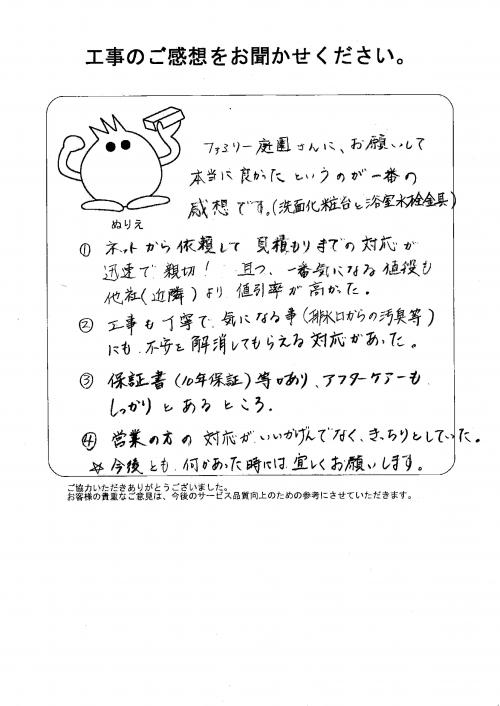 工事のご感想をお聞かせください。
ファミリー庭園さんに、お願いして
本当に良かたというのが一番の
感想です。(洗面化粧台と浴室水栓金具)
ぬりえ
① ネットから依頼して見積もりまでの対応が
迅速で親切! 且つ、一番気になる値段も
他社(近隣)より値引率が高かった。
② 工事も丁寧で、気になる事(排水口からの汚臭等)
にも、不安を解消してもらえる対応があった。
③ 保証書(10年保証)等があり、アフターケアーも
しっかりとあるところ。
④ 営業の方の対応がいいかげんでなく、きっちりとしていた。
☆今後とも、何かあった時には宜しくお願いします。
ご協力いただきありがとうございました。
お客様の貴重なご意見は、今後のサービス品質向上のための参考にさせていただきます。